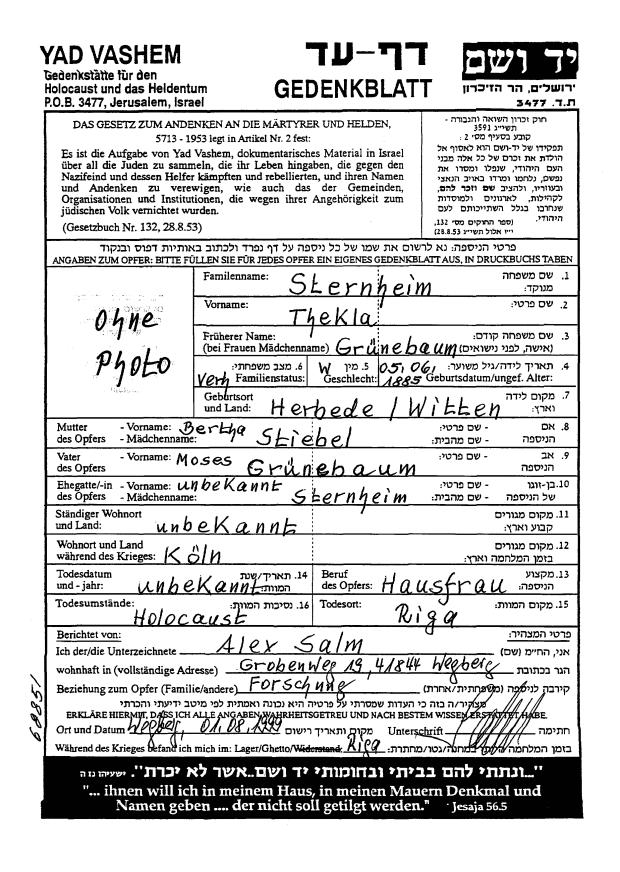 YAD VASHEM
Gedenkstätte für den
Holocaust und das Heldentum
P.O.B. 3477, Jerusalem, Israel
דף-עד
GEDENKBLATT
יד ושם
ירושלים, הר הזיכרון
ת.ד. 3477
DAS GESETZ ZUM ANDENKEN AN DIE MÄRTYRER UND HELDEN,
5713 - 1953 legt in Artikel Nr. 2 fest:
Es ist die Aufgabe von Yad Vashem, dokumentarisches Material in Israel
über all die Juden zu sammeln, die ihr Leben hingaben, die gegen den
Nazifeind und dessen Helfer kämpften und rebellierten, und ihren Namen
und Andenken zu verewigen, wie auch das der Gemeinden,
Organisationen und Institutionen, die wegen ihrer Angehörigkeit zum
jüdischen Volk vernichtet wurden.
(Gesetzbuch Nr. 132, 28.8.53)
חוק זכרון השואה והגבורה -
תשי"ג 3591
קובע בסעיף מס' 2:
תפקידו של יד-ושם הוא לאסוף אל
המולדת את זכרם של כל אלה מבני
העם היהודי, שנפלו ומסרו את
נפשם, נלחמו ומרדו באויב הנאצי
ובעוזריו, ולהציב שם וזכר להם,
לקהילות, לארגונים ולמוסדות
שנחרבו בגלל השתייכותם לעם
היהודי.
(ספר החוקים מס' 132,
י"ז אלול תשי"ג 28.8.53)
פרטי הניספה: נא לרשום את שמו של כל ניספה על דף נפרד ולכתוב באותיות דפוס ובנקוד
ANGABEN ZUM OPFER: BITTE FÜLLEN SIE FÜR JEDES OPFER EIN EIGENES GEDENKBLATT AUS, IN DRUCKBUCHSTABEN
Ohne
Photo
Familienname: Sternheim 1. שם משפחה
מנוקד:
Vorname: Thekla 2. שם פרטי:
Früherer Name:
(bei Frauen Mädchenname) Grünebaum 3. שם משפחה קודם:
(אישה, לפני נישואים)
Verh Familienstatus: 6. מצב משפחתי:
W Geschlecht: 5. מין
05.06.1885 Geburtsdatum/ungef. Alter: 4. תאריך לידה/גיל משוער:
Geburtsort
und Land: Herbede / Witten 7. מקום לידה
וארץ:
Mutter - Vorname: Bertha - שם פרטי: 8. אם
des Opfers - Mädchenname: Stiebel - שם מהבית: הניספה
Vater - Vorname: Moses - שם פרטי: 9. אב
des Opfers Grünebaum הניספה
Ehegatte/-in - Vorname: unbekannt - שם פרטי: 10. בן-זוגו
des Opfers - Mädchenname: Sternheim - שם מהבית: של הניספה
Ständiger Wohnort
und Land: unbekannt 11. מקום מגורים
קבוע וארץ:
Wohnort und Land
während des Krieges: Köln 12. מקום מגורים
בזמן המלחמה וארץ:
Todesdatum
und - jahr: unbekannt 14. תאריך/שנת
המוות:
Beruf
des Opfers: Hausfrau 13. מקצוע
הניספה:
Todesumstände: Holocaust 16. נסיבות המוות:
Todesort: Riga 15. מקום המוות:
Berichtet von: פרטי המצהיר:
Ich der/die Unterzeichnete Alex Salm אני, החי"מ (שם)
wohnhaft in (vollständige Adresse) Grobenweg 19, 41844 Wegberg הגר בכתובת
Beziehung zum Opfer (Familie/andere) Forschung קירבה לניספה (משפחתית/אחרת)
מצהיר/ה בזה כי העדות שמסרתי על פרטיה היא נכונה ואמתית לפי מיטב ידיעתי והכרתי
ERKLÄRE HIERMIT, DASS ICH ALLE ANGABEN WAHRHEITSGETREU UND NACH BESTEM WISSEN ERSTATTET HABE.
Ort und Datum Wegberg, 01.08.1999 מקום ותאריך רישום Unterschrift חתימה
Während des Krieges befand ich mich im: Lager/Ghetto/Widerstand: Riga בזמן המלחמה הייתי במחנה/גטו/מחתרת:
68851
"...ונתתי להם בביתי ובחומותי יד ושם...אשר לא יכרת". ישעיהו נו ה
"... ihnen will ich in meinem Haus, in meinen Mauern Denkmal und
Namen geben .... der nicht soll getilgt werden." Jesaja 56.5